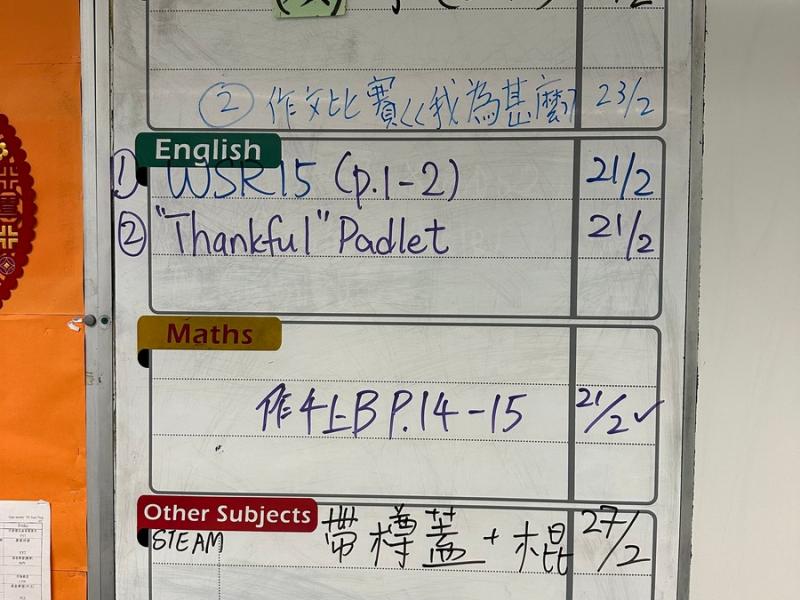 ② 作文比賽《我為甚麼 23/2
English
① WSR15 (p.1-2) 21/2
② "Thankful" Padlet 21/2
Maths
作4上B P.14-15 21/2 ✓
Other Subjects
STEAM 帶樽蓋 + 棍 27/2